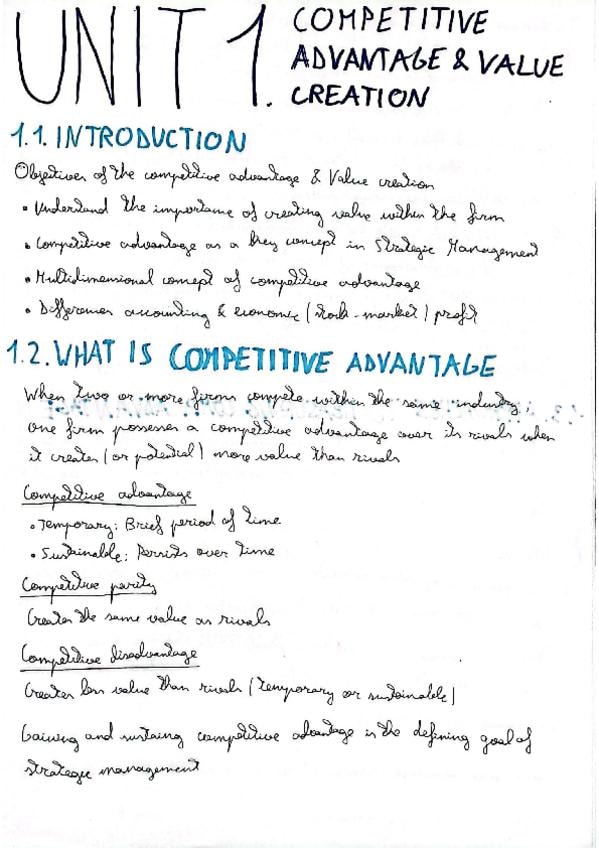 UNIT 1. COMPETITIVE
ADVANTAGE & VALUE
CREATION
1.1. INTRODUCTION
Objectives of the competitive advantage & Value creation
• Understand the importance of creating value within the firm
• Competitive advantage as a key concept in Strategic Management
• Multidimensional concept of competitive advantage
• Differences accounting & economic (stock-market) profit
1.2. WHAT IS COMPETITIVE ADVANTAGE
When two or more firms compete within the same industry,
one firm possesses a competitive advantage over its rivals when
it creates (or potential) more value than rivals
Competitive advantage
• Temporary: Brief period of time
• Sustainable: Persists over time
Competitive parity
Creates the same value as rivals
Competitive disadvantage
Creates less value than rivals (temporary or sustainable)
Gaining and sustaing competitive advantage is the defining goal of
strategic management